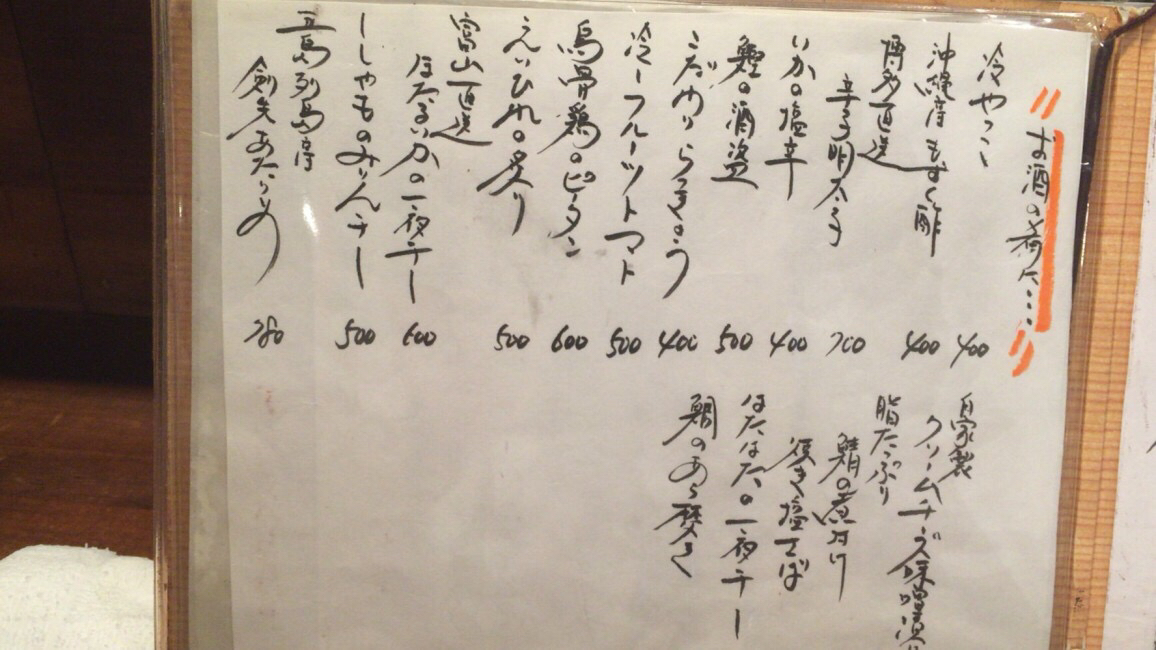 お酒の肴に…
冷やっこ
400
沖縄産もずく酢
400
博多直送
辛子明太子
700
いかの塩辛
400
鰹の酒盗
500
こだわりらっきょう
400
冷しフルーツトマト
500
烏骨鶏のピータン
600
えいひれの炙り
500
富山直送
ほたるいかの一夜干し
600
ししゃものみりん干し
500
五島列島産
剣先あたりめ
780
自家製
クリームチーズ味噌漬
脂たっぷり
鯖の煮付け
焼き塩さば
はたはたの一夜干し
鯛のあら焼き